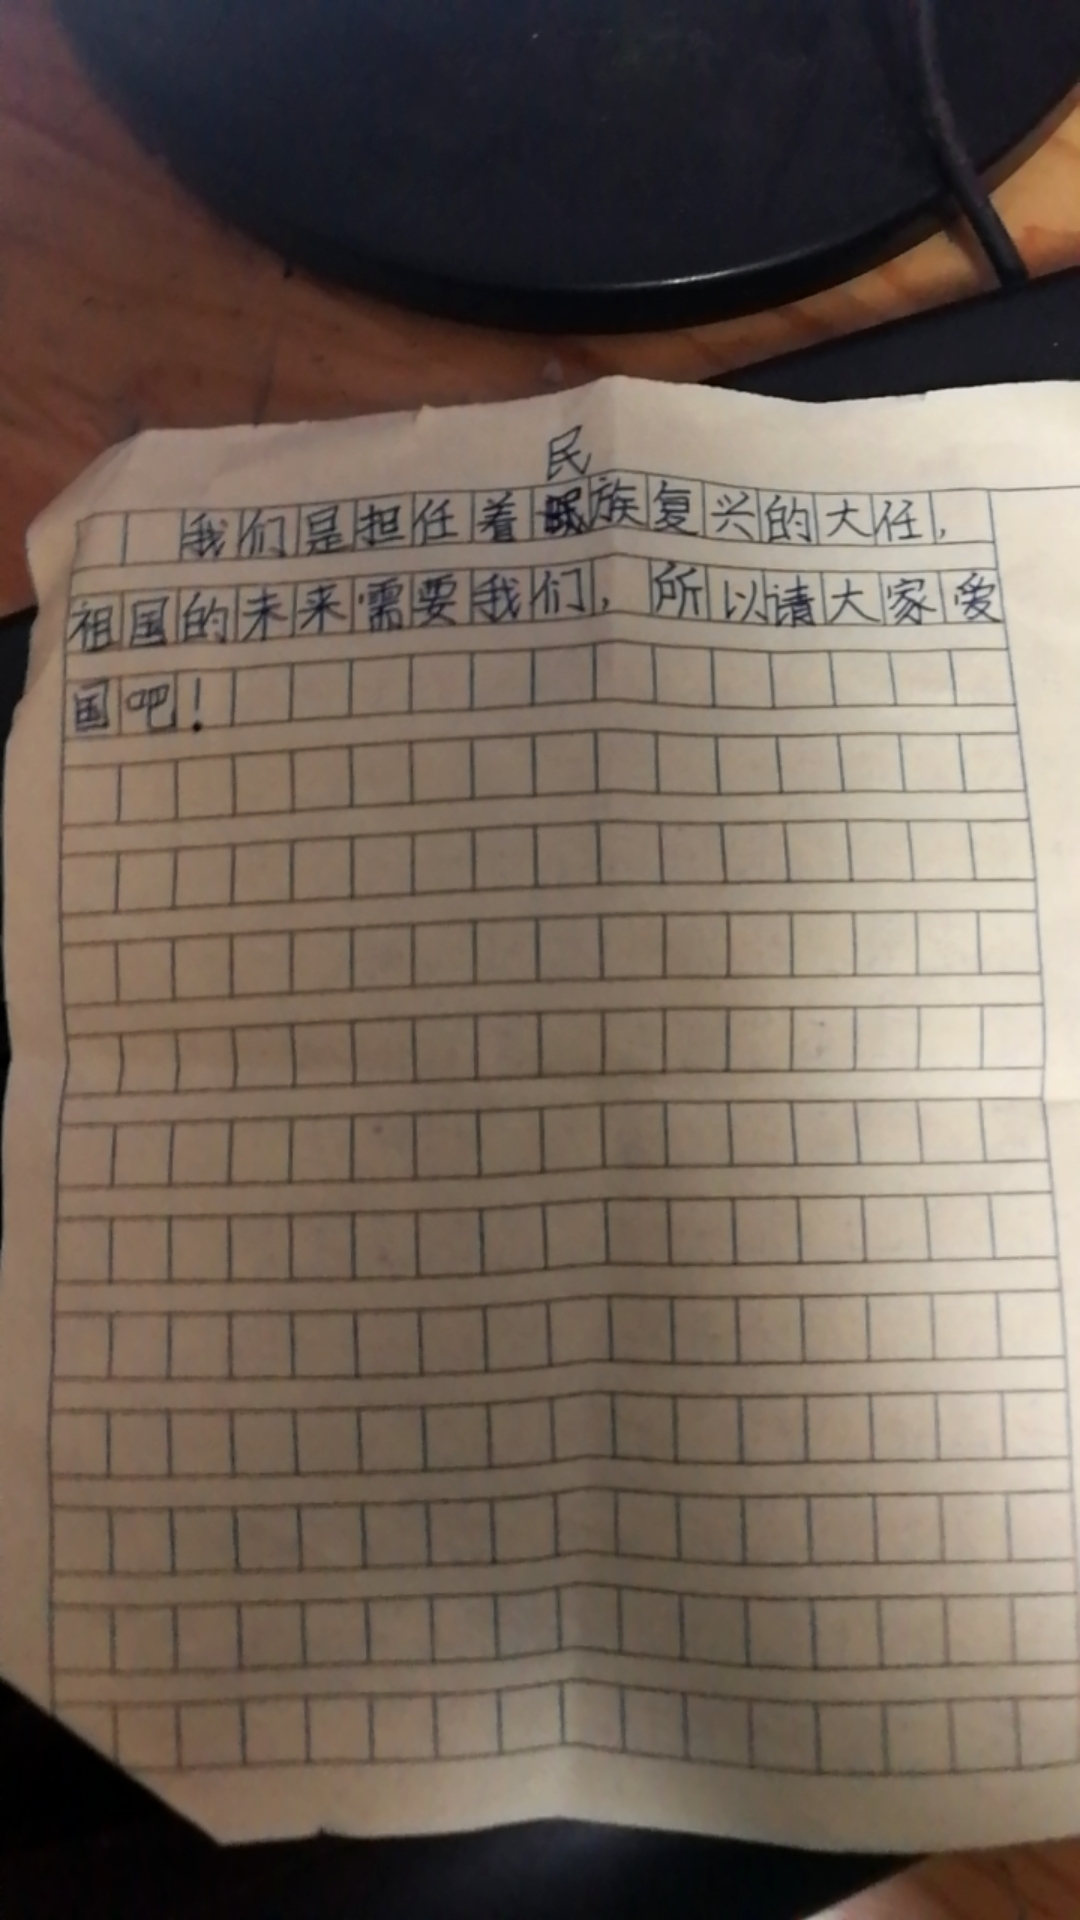 我们是担任着民族复兴的大任,
祖国的未来需要我们,所以请大家爱
国吧!